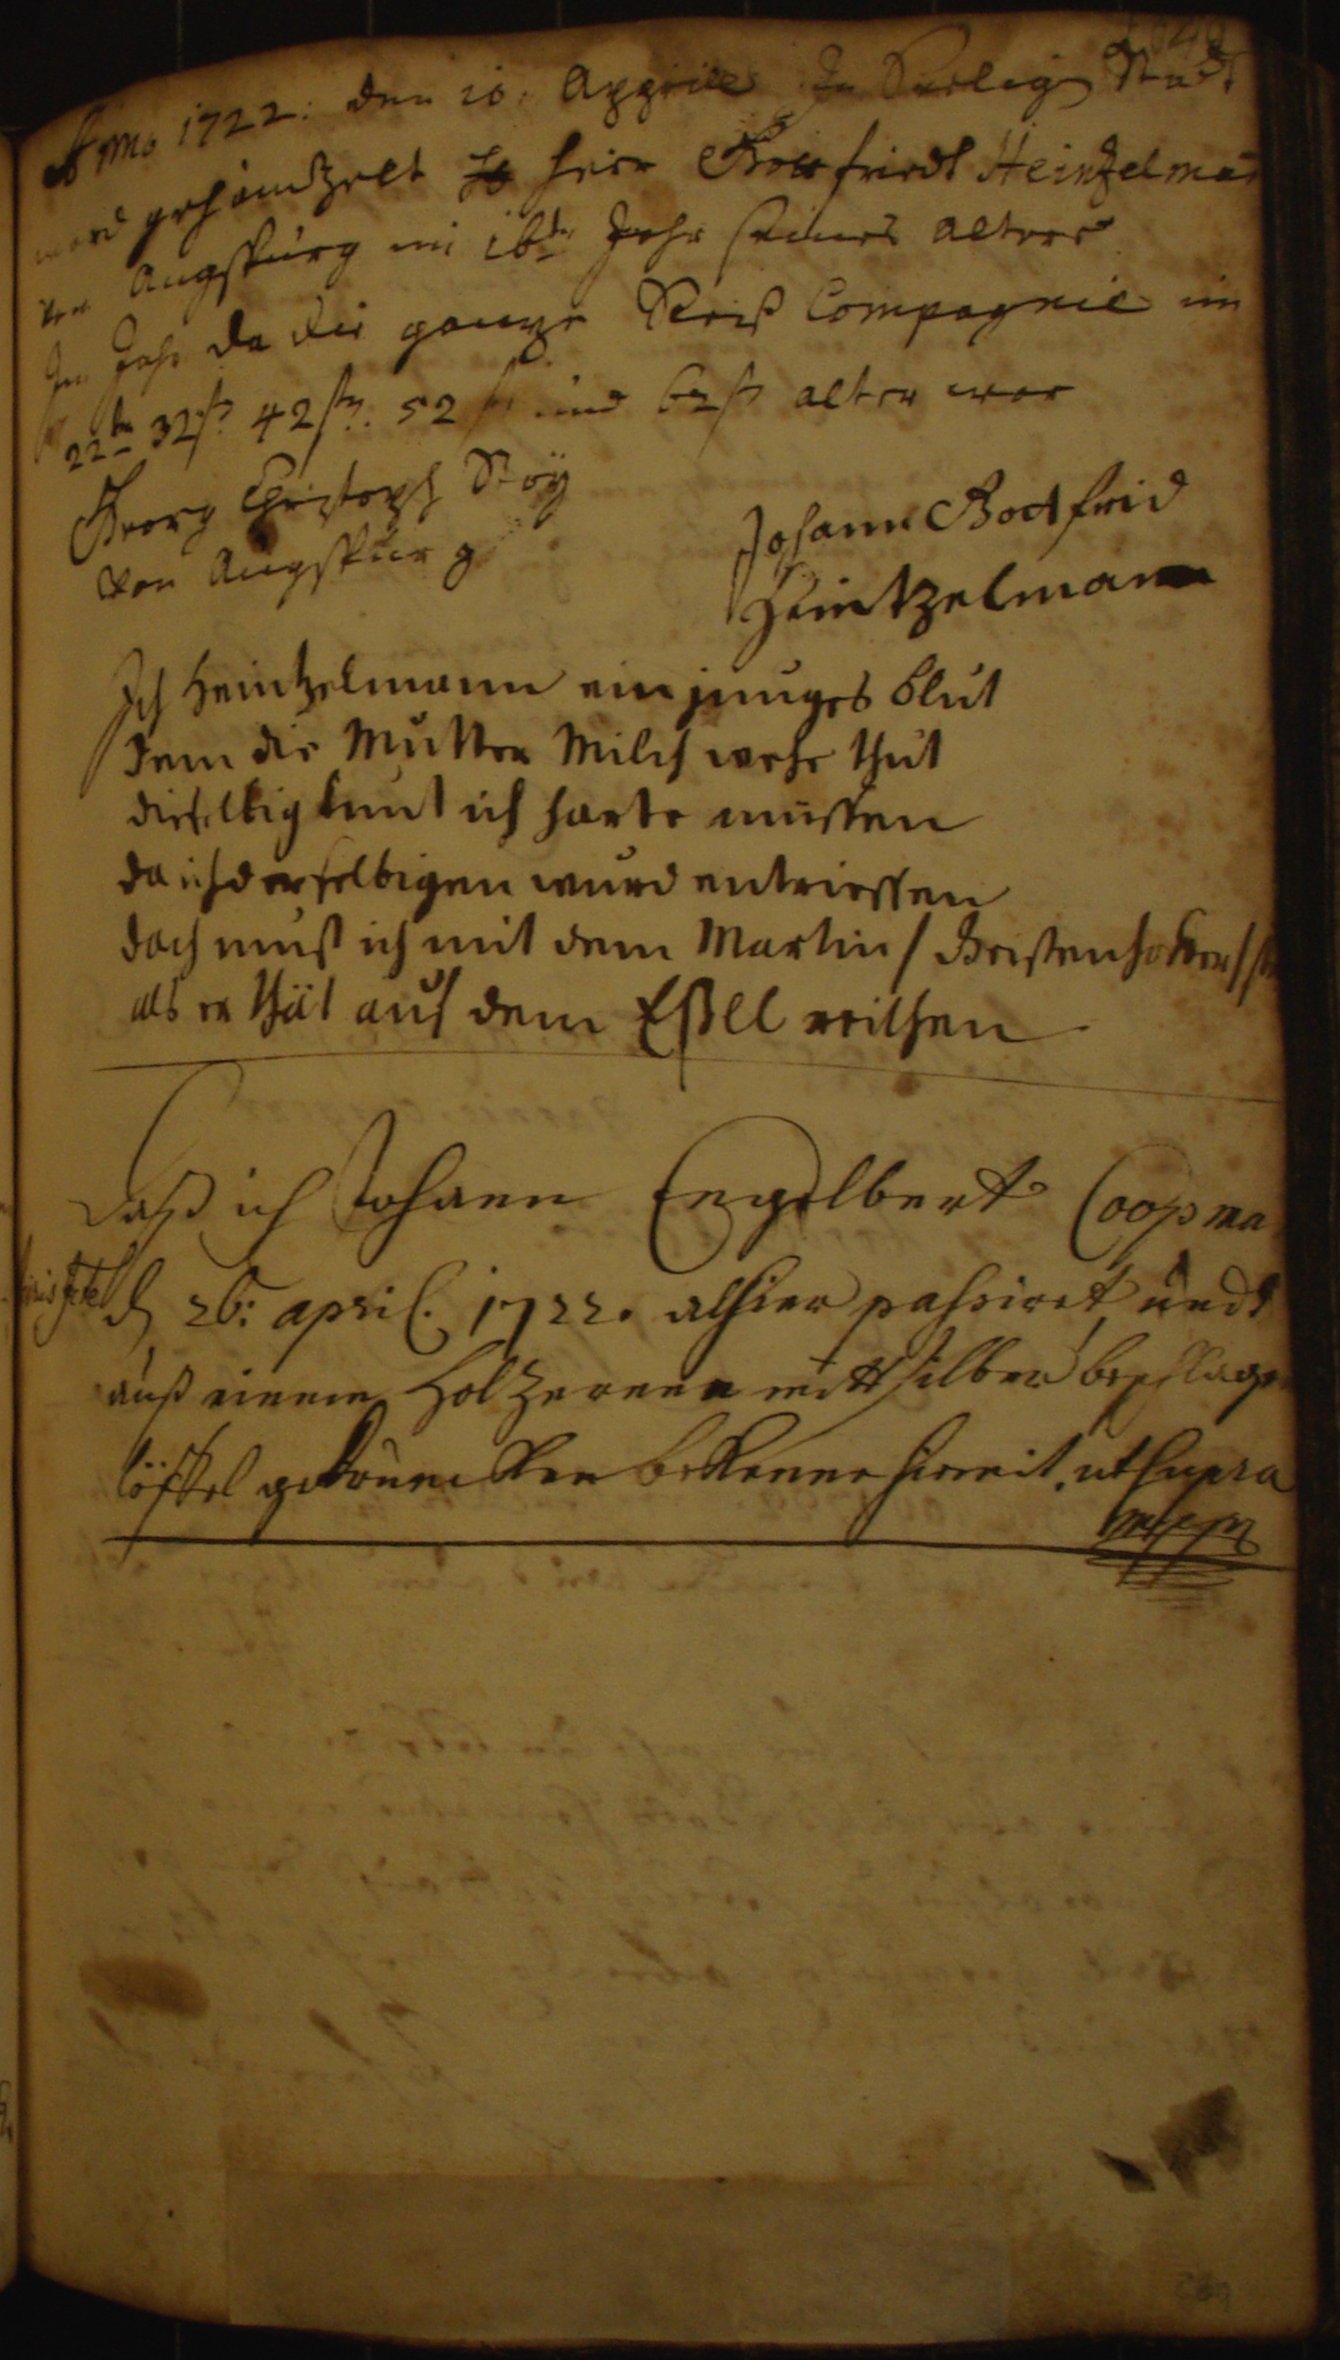 Anno 1722. den 10. Apprill In Seelig Stadt
ward gehäntzelt Herr Gottfriedt Heintzelman
von Augspurg im 16tn Jahr seines Alters
Im Jahr da die gantze Reiß Compagnie im
22tn 32stn 42stn. 52stn und 62stn alter war
Georg Christoph Stoÿ
von Augspurg
Johann Gottfrid
Heintzelmann
Ich Heintzelmann ein junges blut
dem die Mutter Milch wehe thut
dieselbig kunt ich harte müssen
da ich derselbigen wurd entriessen
doch muß ich mit dem Martin
als er thät auf dem Eßell reithen
Daß ich Johann Engelbert Coopma
d 26: april. 1722. alhier passiret undt
auß einem Holzernen mitt silber beschlagen
löffel getruncken bekenne hiemit. ut supra
mppr